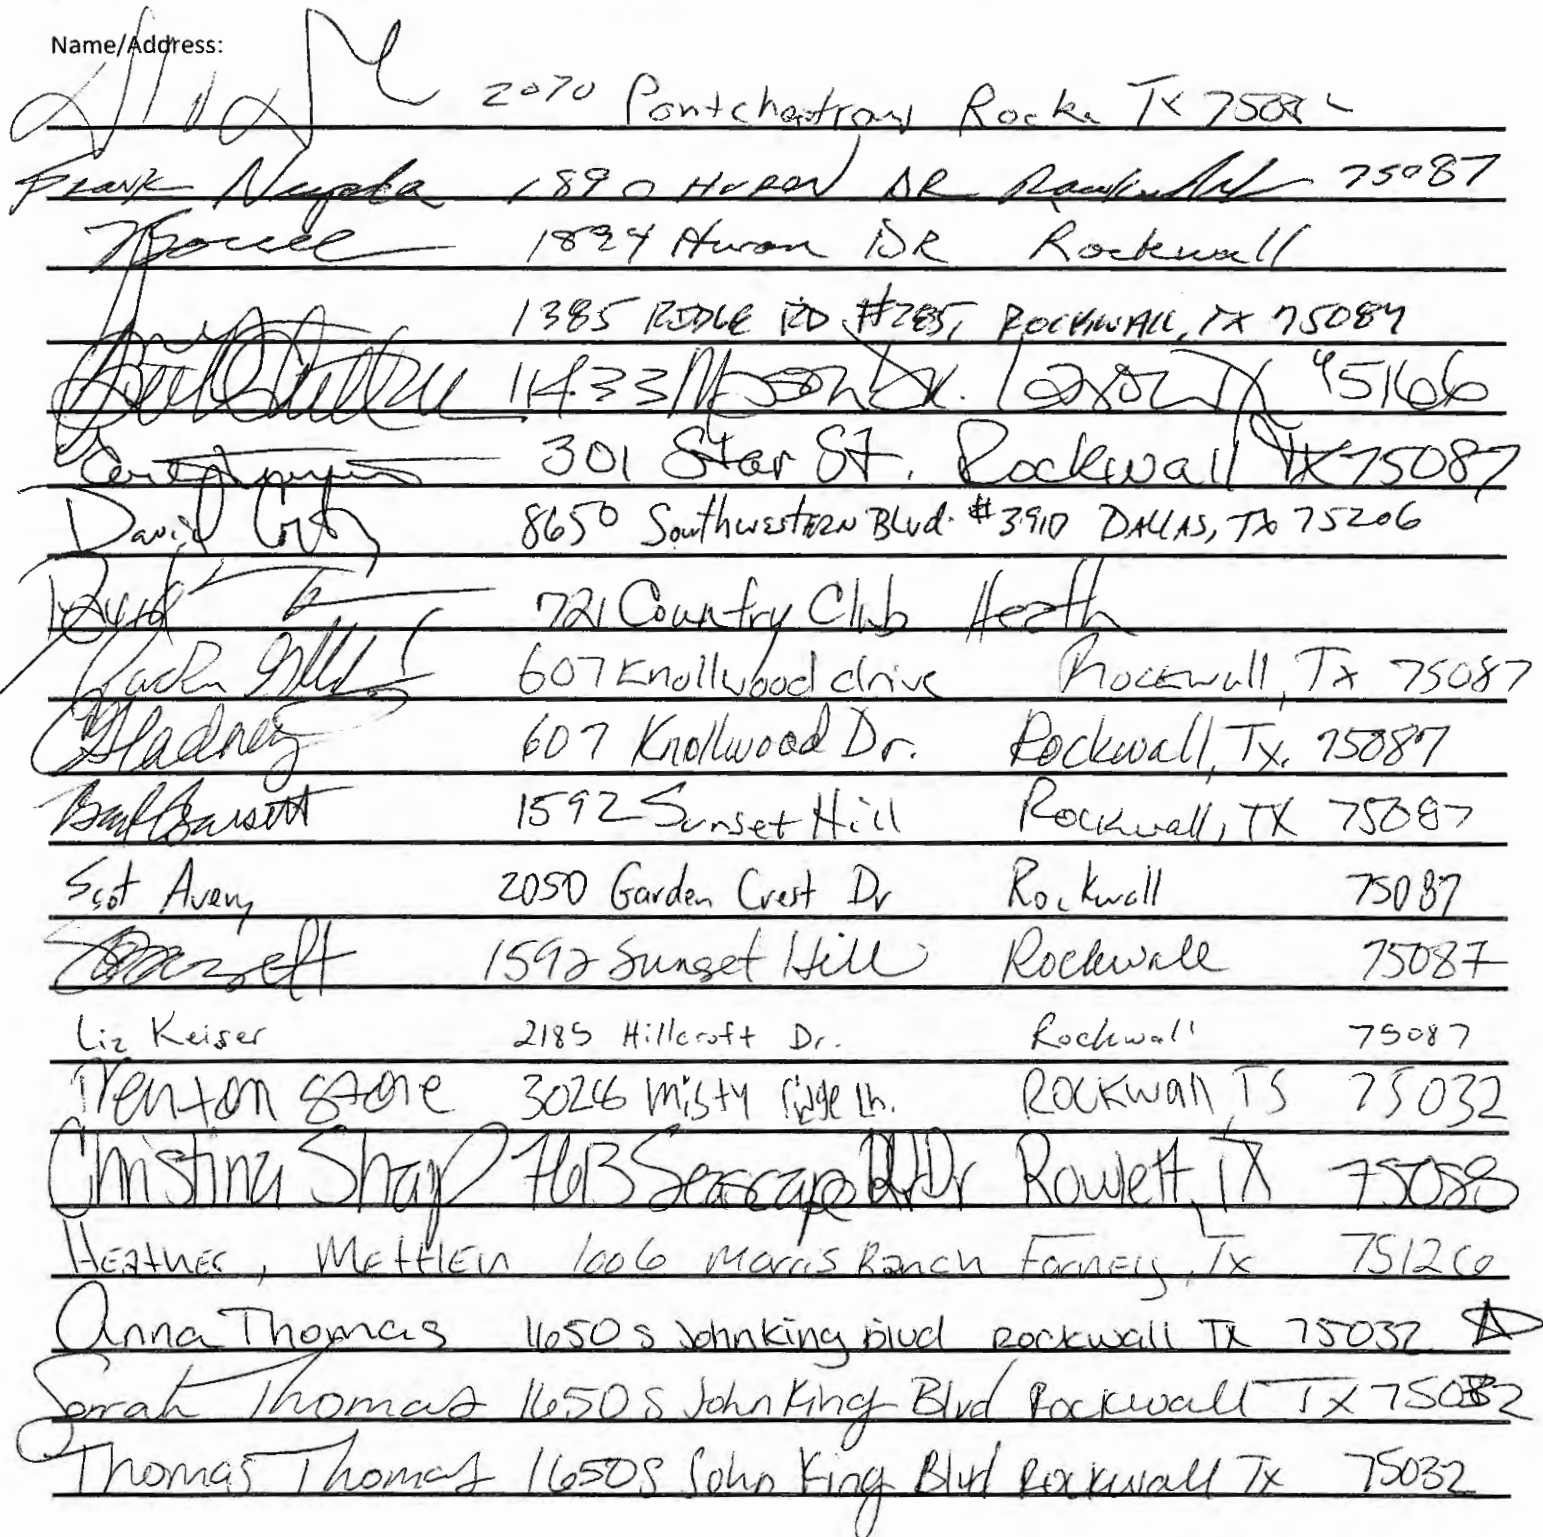 Name/Address:
2070 Rocke TX 7508
Frank 1890 Huron DR 75087
1894 Huron DR Rockwall
1385 RIDGE RD #285, ROCKWALL, TX 75087
11433 Dr. TX 75166
301 Star St. Rockwall TX 75087
David 8650 Southwestern Blvd. #3910 DALLAS, TX 75206
David 721 Country Club Heath
607 Knollwood drive Rockwall, Tx 75087
Gladney 607 Knollwood Dr. Rockwall, Tx. 75087
1592 Sunset Hill Rockwall, TX 75087
Scot Avery 2050 Garden Crest Dr Rockwall 75087
1592 Sunset Hill Rockwall 75087
Liz Keiser 2185 Hillcroft Dr. Rockwall 75087
Trenton Stone 3026 Misty ridge ln. Rockwall TS 75032
Christina Dr Rowlett, TX
Heather, Mettlen 1006 Morris Ranch Forney, Tx 75126
Anna Thomas 1650 S John King Blvd Rockwall Tx 75032
Sarah Thomas 1650 S John King Blvd Rockwall TX 75032
Thomas Thomas 1650 S John King Blvd Rockwall Tx 75032